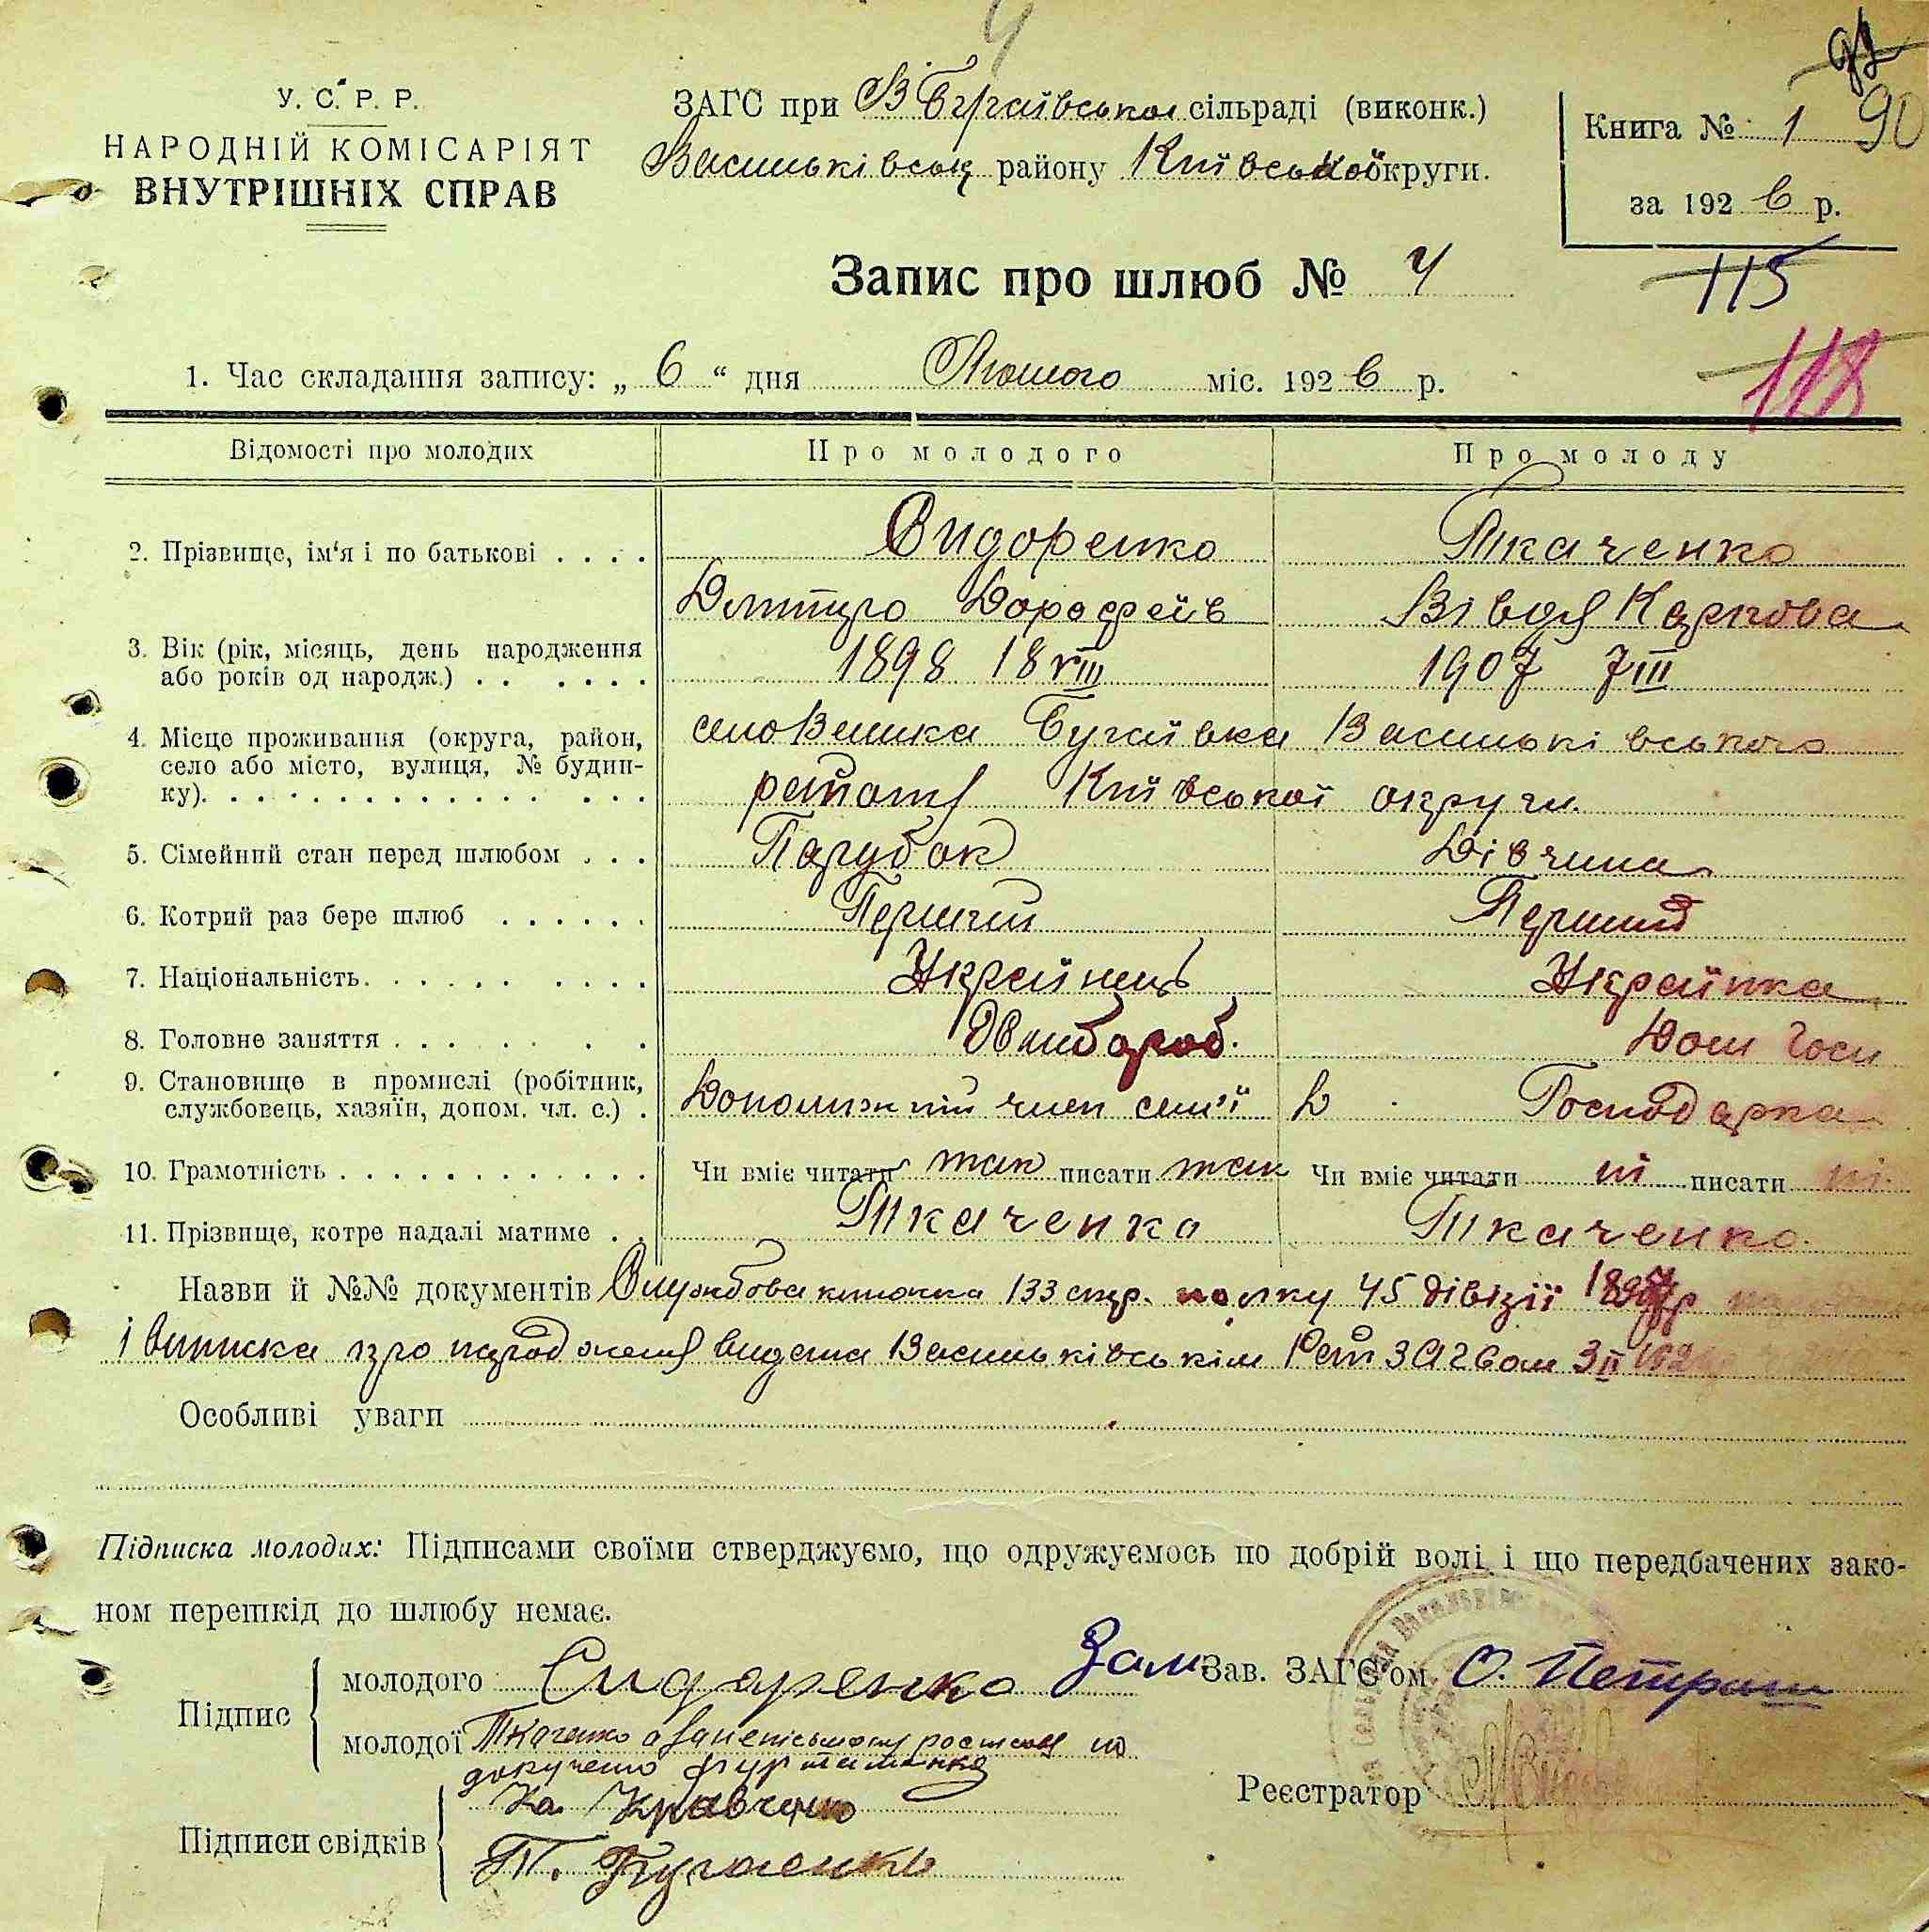 У. С. Р. Р.
НАРОДНІЙ КОМІСАРІЯТ
ВНУТРІШНІХ СПРАВ
ЗАГС при В Бугаївської сільраді (виконк.)
Васильківськ району Київської округи.
Книга № 1 90
за 192 6 р.
Запис про шлюб № 4
115
118
1. Час складання запису: „ 6 “ дня Лютого міс. 192 6 р.
Відомості про молодих Про молодого Про молоду
2. Прізвище, ім'я і по батькові . . . . Сидоренко Ткаченко
Дмитро Дорофеїв Вівдя Карпова
3. Вік (рік, місяць, день народження 1898 18 VIII 1907 7 III
або років од народж.) . . . . . .
4. Місце проживання (округа, район, село Велика Бугаївка Васильківського
село або місто, вулиця, № будин-
ку). . . . . . . . . . . . . . . . району Київської округи.
5. Сімейний стан перед шлюбом . . . Парубок Дівчина
6. Котрий раз бере шлюб . . . . . . Перший Перший
7. Національність. . . . . . . . . . Украйнець Украйнка
8. Головне заняття . . . . . . . Дом Госп
9. Становище в промислі (робітник,
службовець, хазяїн, допом. чл. с.) . Допоможний член сем'ї Д. Господарка
10. Грамотність . . . . . . . . . . . . Чи вміє читати так писати так Чи вміє читати ні писати ні.
11. Прізвище, котре надалі матиме . . Ткаченко Ткаченко.
Назви й №№ документів Службова книжка 133 стр. полку 45 дівізії
і виписка про народження видана Васильківськім Рай ЗАГСом 3 II
Особливі уваги
Підписка молодих: Підписами своїми стверджуємо, що одружуємось по добрій волі і що передбачених зако-
ном перешкід до шлюбу немає.
Підпис
молодого Сидоренко
Зам Зав. ЗАГС'ом О. Петраш
молодої Ткаченко а за неписьмену росписав по
доручено
Реєстратор
Підписи свідків
Кравченко
Т. Бугаенко